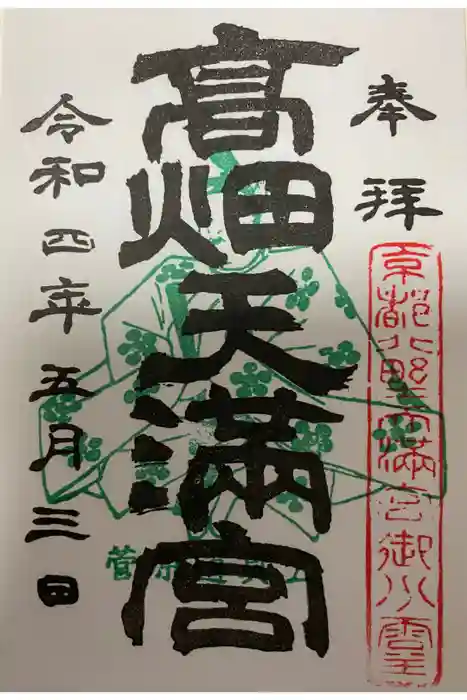 奉拝
京都北野天満宮御分霊
髙畑天満宮
令和四年五月三日